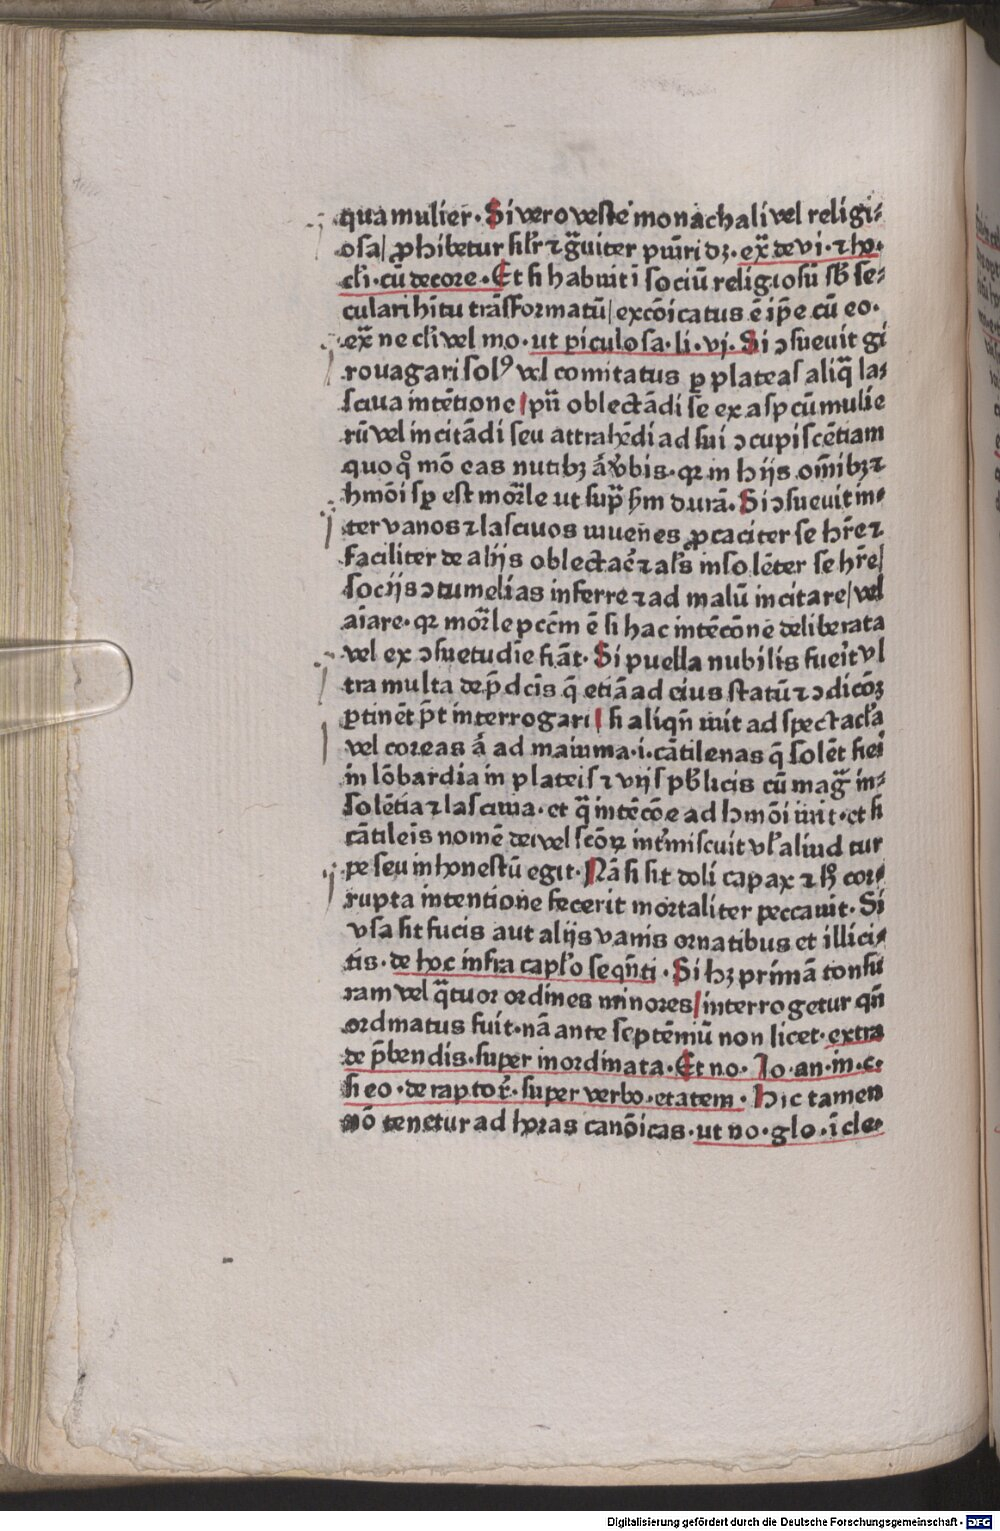 qua mulier. Si vero veste monachali vel religi-
osa/ ꝓhibetur silr̄ ⁊ gͣuiter puniri dꝫ. ex̄ de vi. ⁊ ho.
cl̄i. cū decore. Et si habuit ī sociū religiosū sb̄ se-
culari hītu trāsformatū/ excōicatus ē ip̄e cū eo.
ex̄ ne cl̄i vel mo. ut ꝑiculosa. li. vj. Si ɔsueuit gi
rouagari solꝰ vel comitatus ꝑ plateas aliqͣ las
sciua intētione/ pūī oblectādi se ex aspcū mulie
rū vel incitādi seu attrahēdi ad sui ɔcupiscētiam
quoqͦ mō eas nutibꝫ aͧ v̄bis. qꝛ in hijs oīnibꝫ ⁊
hmōi sꝑ est mor̄le ut supͣ sm̄ durā. Si ɔsueuit in-
ter vanos ⁊ lasciuos iuuenes ꝓcaciter se hr̄e ⁊
faciliter de alijs oblectaē ⁊ al̄s insolēter se hr̄e/
socijs ɔtumelias inferre ⁊ ad malū incitare/ vel
aīare. qꝛ mor̄le pccm̄ ē si hac intēcōne deliberata
vel ex ɔsuetudīe fiāt. Si puella nubilis fueīt vl
tra multa de p̄dcīs q̄ etiā ad eius statū ⁊ ɔdicōꝫ
ꝑtinēt pn̄t interrogari/ si aliqn̄ iuit ad spectacl̄a
vel coreas aͧ ad maiuma. i. cātilenas q̄ solēt fiei
in lōbardia in plateis ⁊ vijs pb̄licis cū magͣ in-
solētia ⁊ lasciuia. et qͣ intēcōe ad hmōi iuit. et si
cātileīs nomē dei vel scōꝝ int̄miscuit vl̄ aliud tur
pe seu inhonestū egit. Nā si sit doli capax ⁊ hͦ cor-
rupta intentione fecerit mortaliter peccauit. Si
vsa sit fucis aut alijs vanis ornatibus et illici-
tis. de hoc infra capl̄o seqn̄ti. Si hꝫ primā tonsu
ram vel qͣtuor ordines minores/ interrogetur qn̄
ordinatus fuit. nā ante septēniū non licet. extra
de p̄bendis. super inordinata. Et no. Jo. an. in. c.
si eo. de raptor̄. super verbo. etatem. Hic tamen
nō tenetur ad horas canōicas. ut no. glo. ī cle.
Digitalisierung gefördert durch die Deutsche Forschungsgemeinschaft - DFG